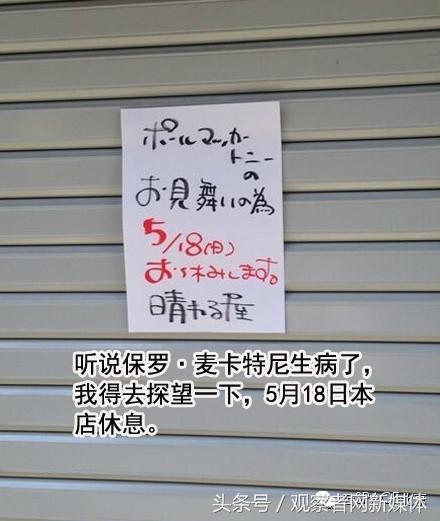 ポールマッカー
トニーの
お見舞いの為
5/18(日)
お休みします。
晴れる屋
听说保罗·麦卡特尼生病了，
我得去探望一下，5月18日本
店休息。
头条号／观察者网新媒体